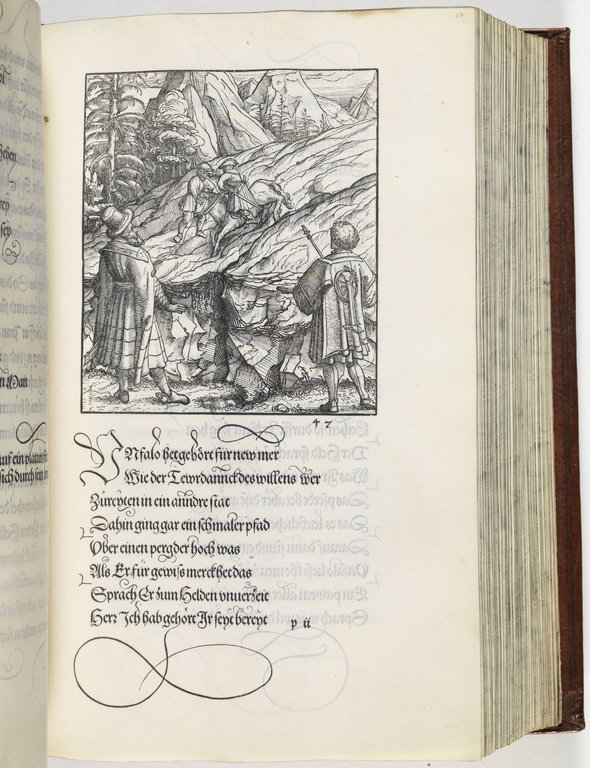 117
47
VNfalo het gehört für new mer
Wie der Tewrdannck des willens wer
Zůreyten in ein anndre stat
Dahin ging gar ein schmaler pfad
Vber einen perg der hoch was
Als Er für gewiss merckhet das
Sprach Er zum Helden vnuerzeit
Herr Ich hab gehört Ir seyt bereyt
p ii
auf ein platten
sich durch sein